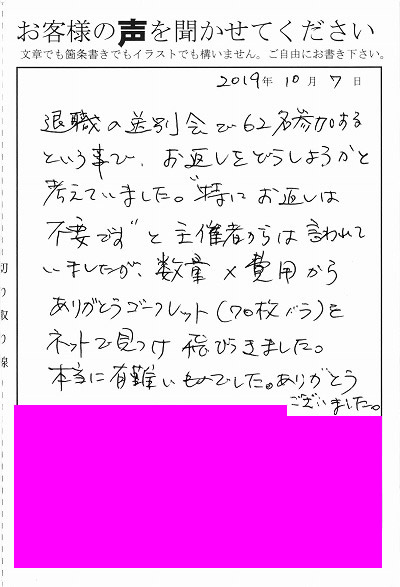 お客様の声を聞かせてください
文章でも箇条書きでもイラストでも構いません。ご自由にお書き下さい。
2019年 10月 7日
退職の送別会で62名参加する
という事で、お返しをどうしようかと
考えていました。"特にお返しは
不要です"と主催者からは言われて
いましたが、数量×費用から
ありがとうゴーフレット(70枚バラ)を
ネットで見つけ飛びつきました。
本当に有難いものでした。ありがとう
ございました。
切り取り線